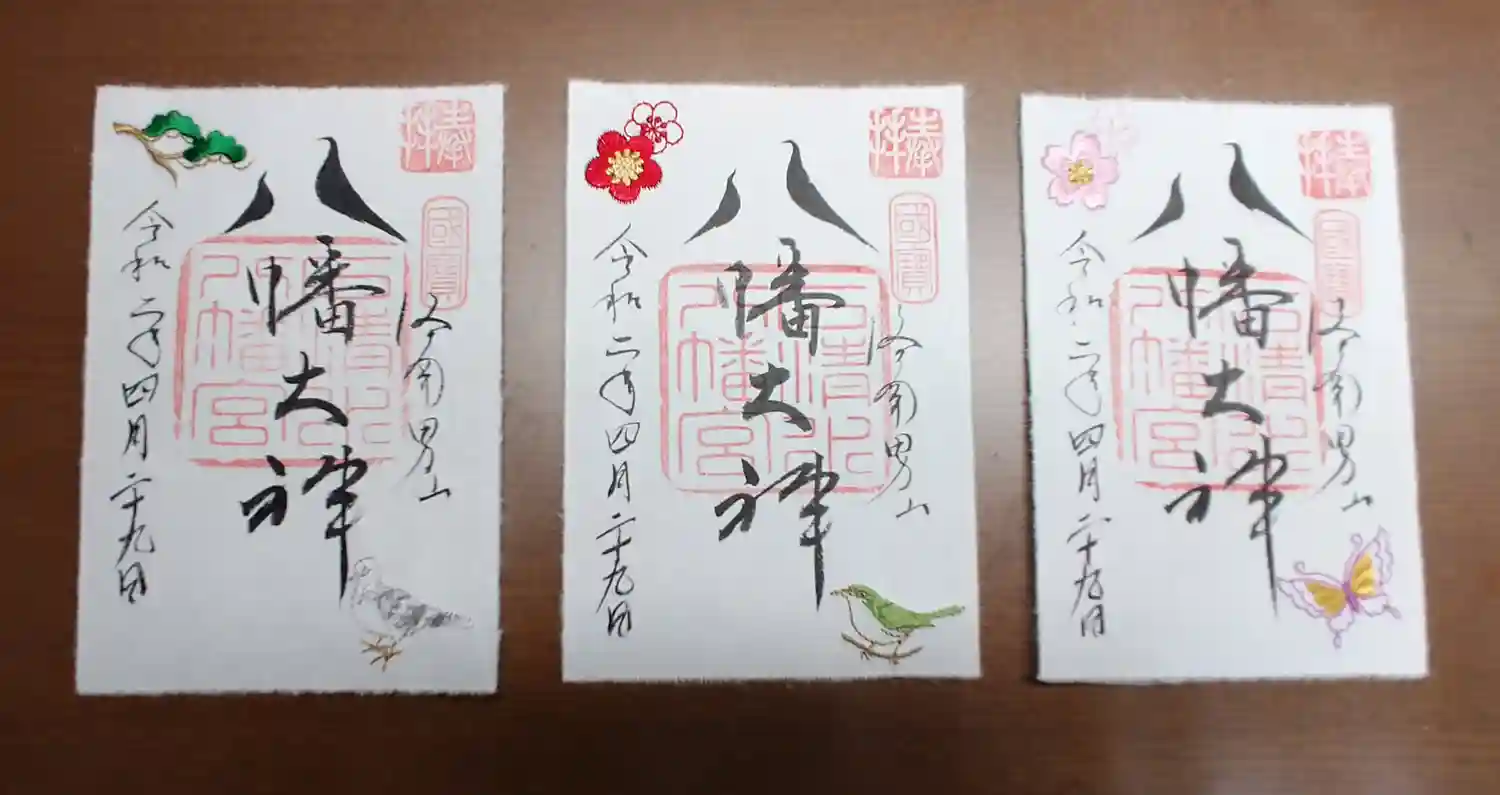 奉拝
國寶
洛南男山
八幡大神
石清水八幡宮
令和二年四月二十九日
奉拝
國寶
洛南男山
八幡大神
石清水八幡宮
令和二年四月二十九日
奉拝
國寶
洛南男山
八幡大神
石清水八幡宮
令和二年四月二十九日